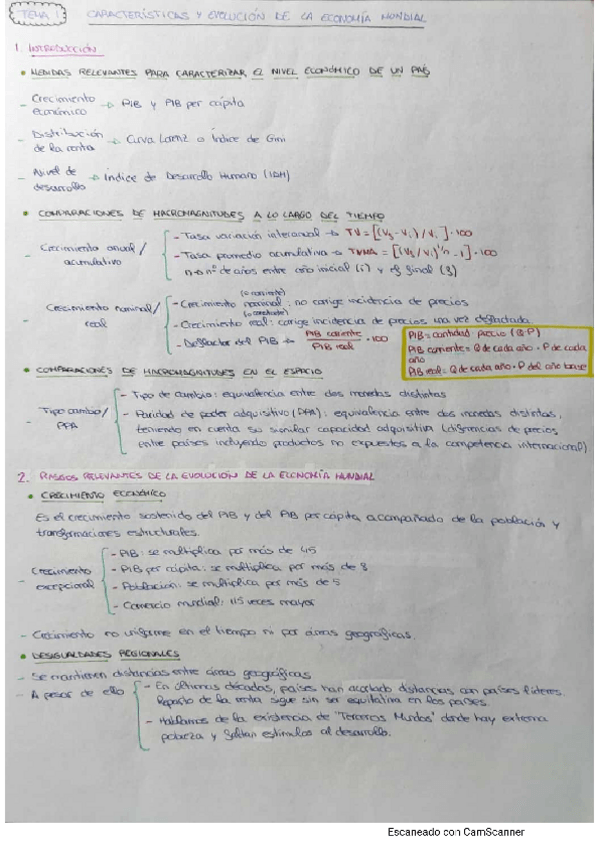 TEMA 1 CARACTERÍSTICAS Y EVOLUCIÓN DE LA ECONOMÍA MUNDIAL
1. INTRODUCCIÓN
• MEDIDAS RELEVANTES PARA CARACTERIZAR EL NIVEL ECONÓMICO DE UN PAÍS
- Crecimiento económico → PIB y PIB per cápita
- Distribución de la renta → Curva Lorenz o Índice de Gini
- Nivel de desarrollo → Índice de Desarrollo Humano (IDH)
• COMPARACIONES DE MACROMAGNITUDES A LO LARGO DEL TIEMPO
- Crecimiento anual / acumulativo
- Tasa variación interanual → TV = [(Vf - Vi) / Vi] · 100
- Tasa promedio acumulativa → TVMA = [(Vf / Vi)^1/n - 1] · 100
n → nº de años entre año inicial (i) y el final (f)
- Crecimiento nominal / real
(o corriente)
- Crecimiento nominal: no corrige incidencia de precios
(o constante)
- Crecimiento real: corrige incidencia de precios una vez deflactada
- Deflactor del PIB → PIB corriente / PIB real · 100
PIB = cantidad · precio (Q·P)
PIB corriente = Q de cada año · P de cada año
PIB real = Q de cada año · P del año base
• COMPARACIONES DE MACROMAGNITUDES EN EL ESPACIO
- Tipo cambio / PPA
- Tipo de cambio: equivalencia entre dos monedas distintas
- Paridad de poder adquisitivo (PPA): equivalencia entre dos monedas distintas,
teniendo en cuenta su similar capacidad adquisitiva (diferencias de precios
entre países incluyendo productos no expuestos a la competencia internacional)
2. RASGOS RELEVANTES DE LA EVOLUCIÓN DE LA ECONOMÍA MUNDIAL
• CRECIMIENTO ECONÓMICO
Es el crecimiento sostenido del PIB y del PIB per cápita acompañado de la población y
transformaciones estructurales.
- Crecimiento excepcional
- PIB: se multiplica por más de 45
- PIB per cápita: se multiplica por más de 8
- Población: se multiplica por más de 5
- Comercio mundial: 115 veces mayor
- Crecimiento no uniforme en el tiempo ni por áreas geográficas.
• DESIGUALDADES REGIONALES
- Se mantienen distancias entre áreas geográficas
- A pesar de ello
- En últimas décadas, países han acortado distancias con países líderes.
Reparto de la renta sigue sin ser equitativa en los países.
- Hablamos de la existencia de "Terceros Mundos" donde hay extrema
pobreza y faltan estímulos al desarrollo.
Escaneado con CamScanner